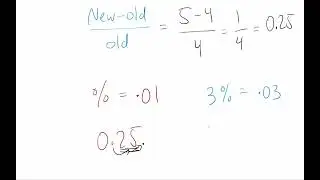 New-old/old = 5-4/4 = 1/4 = 0.25
% = .01 3% = .03
0.25.